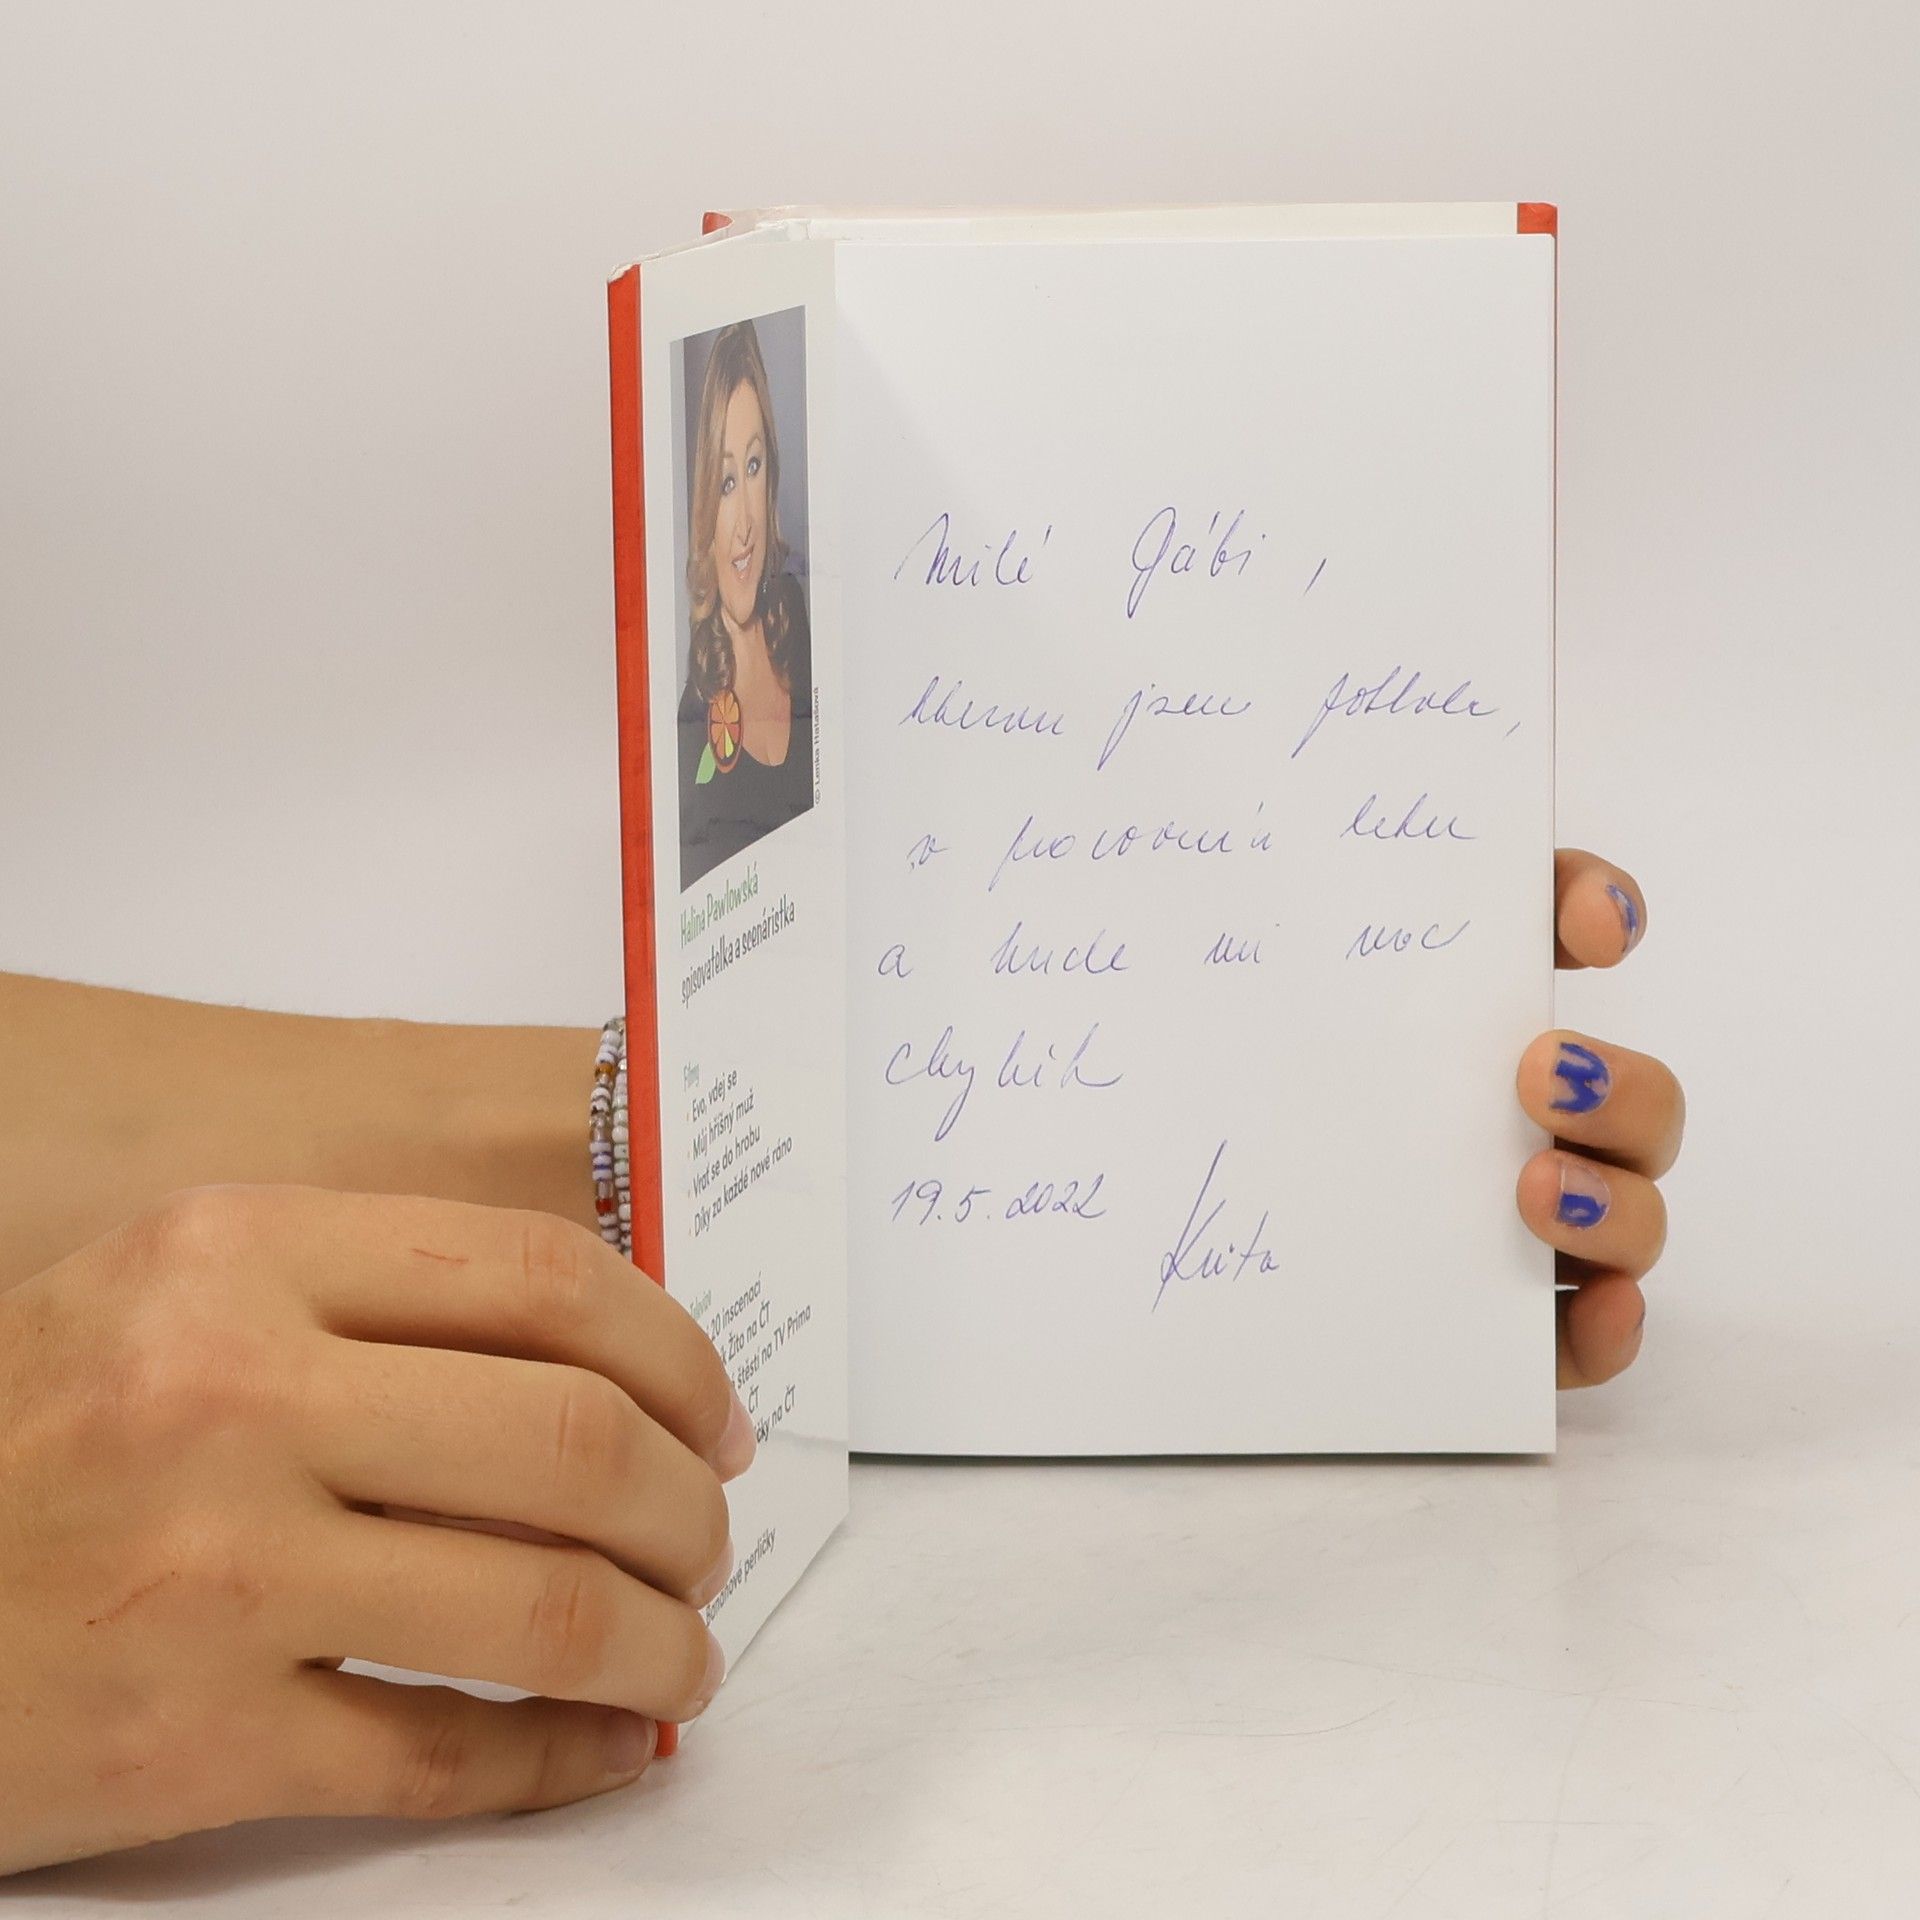 © Lenka Hatašová
Halina Pawlowská
spisovatelka a scenáristka
Filmy
• Evo, vdej se
• Můj hříšný muž
• Vrať se do hrobu
• Díky za každé nové ráno
Televize
20 inscenací
k Žito na ČT
štěstí na TV Prima
ČT
čky na ČT
Banánové perličky
Milé Gábi,
kterou jsem potkala,
v pracovním
a bude mi moc
chybět
19.5.2022
Květa